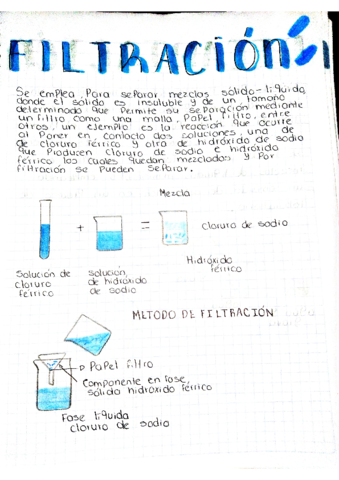 FILTRACIÓN
Se emplea, Para separar mezclas sólido-líquida
donde el sólido es insoluble y de un tamaño
determinado que Permite su separación mediante
un filtro como una malla, Papel filtro, entre
otros, un ejemplo es la reacción que ocurre
al Poner en contacto dos soluciones, una de
de cloruro férrico y otra de hidróxido de sodio
que Producen cloruro de sodio e hidróxido
férrico los cuales quedan mezclados y Por
filtración se Pueden separar.
Mezcla
+ = cloruro de sodio
Solución de cloruro férrico
solución de hidróxido de sodio
Hidróxido férrico
METODO DE FILTRACIÓN
Papel filtro
Componente en fase
sólida hidróxido férrico
Fase líquida
cloruro de sodio